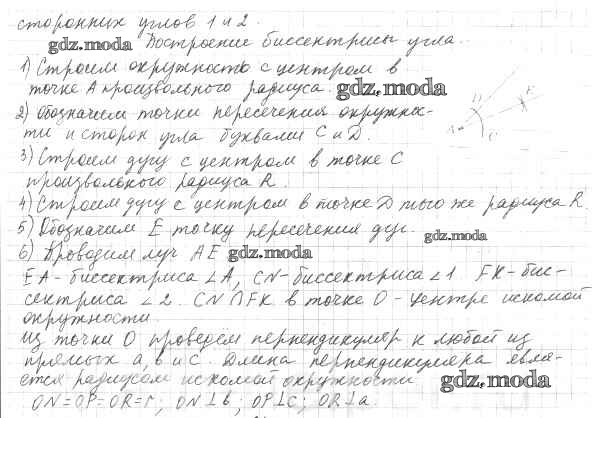 сторонних углов 1 и 2.
gdz.moda Построение биссектрисы угла.
1) Строим окружность с центром в
точке A произвольного радиуса. gdz.moda
2) Обозначим точки пересечения окружнос-
ти и сторон угла буквами C и D.
3) Строим дугу с центром в точке C
произвольного радиуса R.
4) Строим дугу с центром в точке D того же радиуса R.
5) Обозначим E точку пересечения дуг. gdz.moda
6) Проводим луч AE gdz.moda
EA - биссектриса ∠A, CN - биссектриса ∠1 FK - бис-
сектриса ∠2. CN ∩ FK в точке O - центре искомой
окружности.
Из точки O проведем перпендикуляр к любой из
прямых a, b и c. Длина перпендикуляра явля-
ется радиусом искомой окружности gdz.moda
ON = OP = OR = r; ON ⊥ b; OP ⊥ c; OR ⊥ a.
D
E
A
C